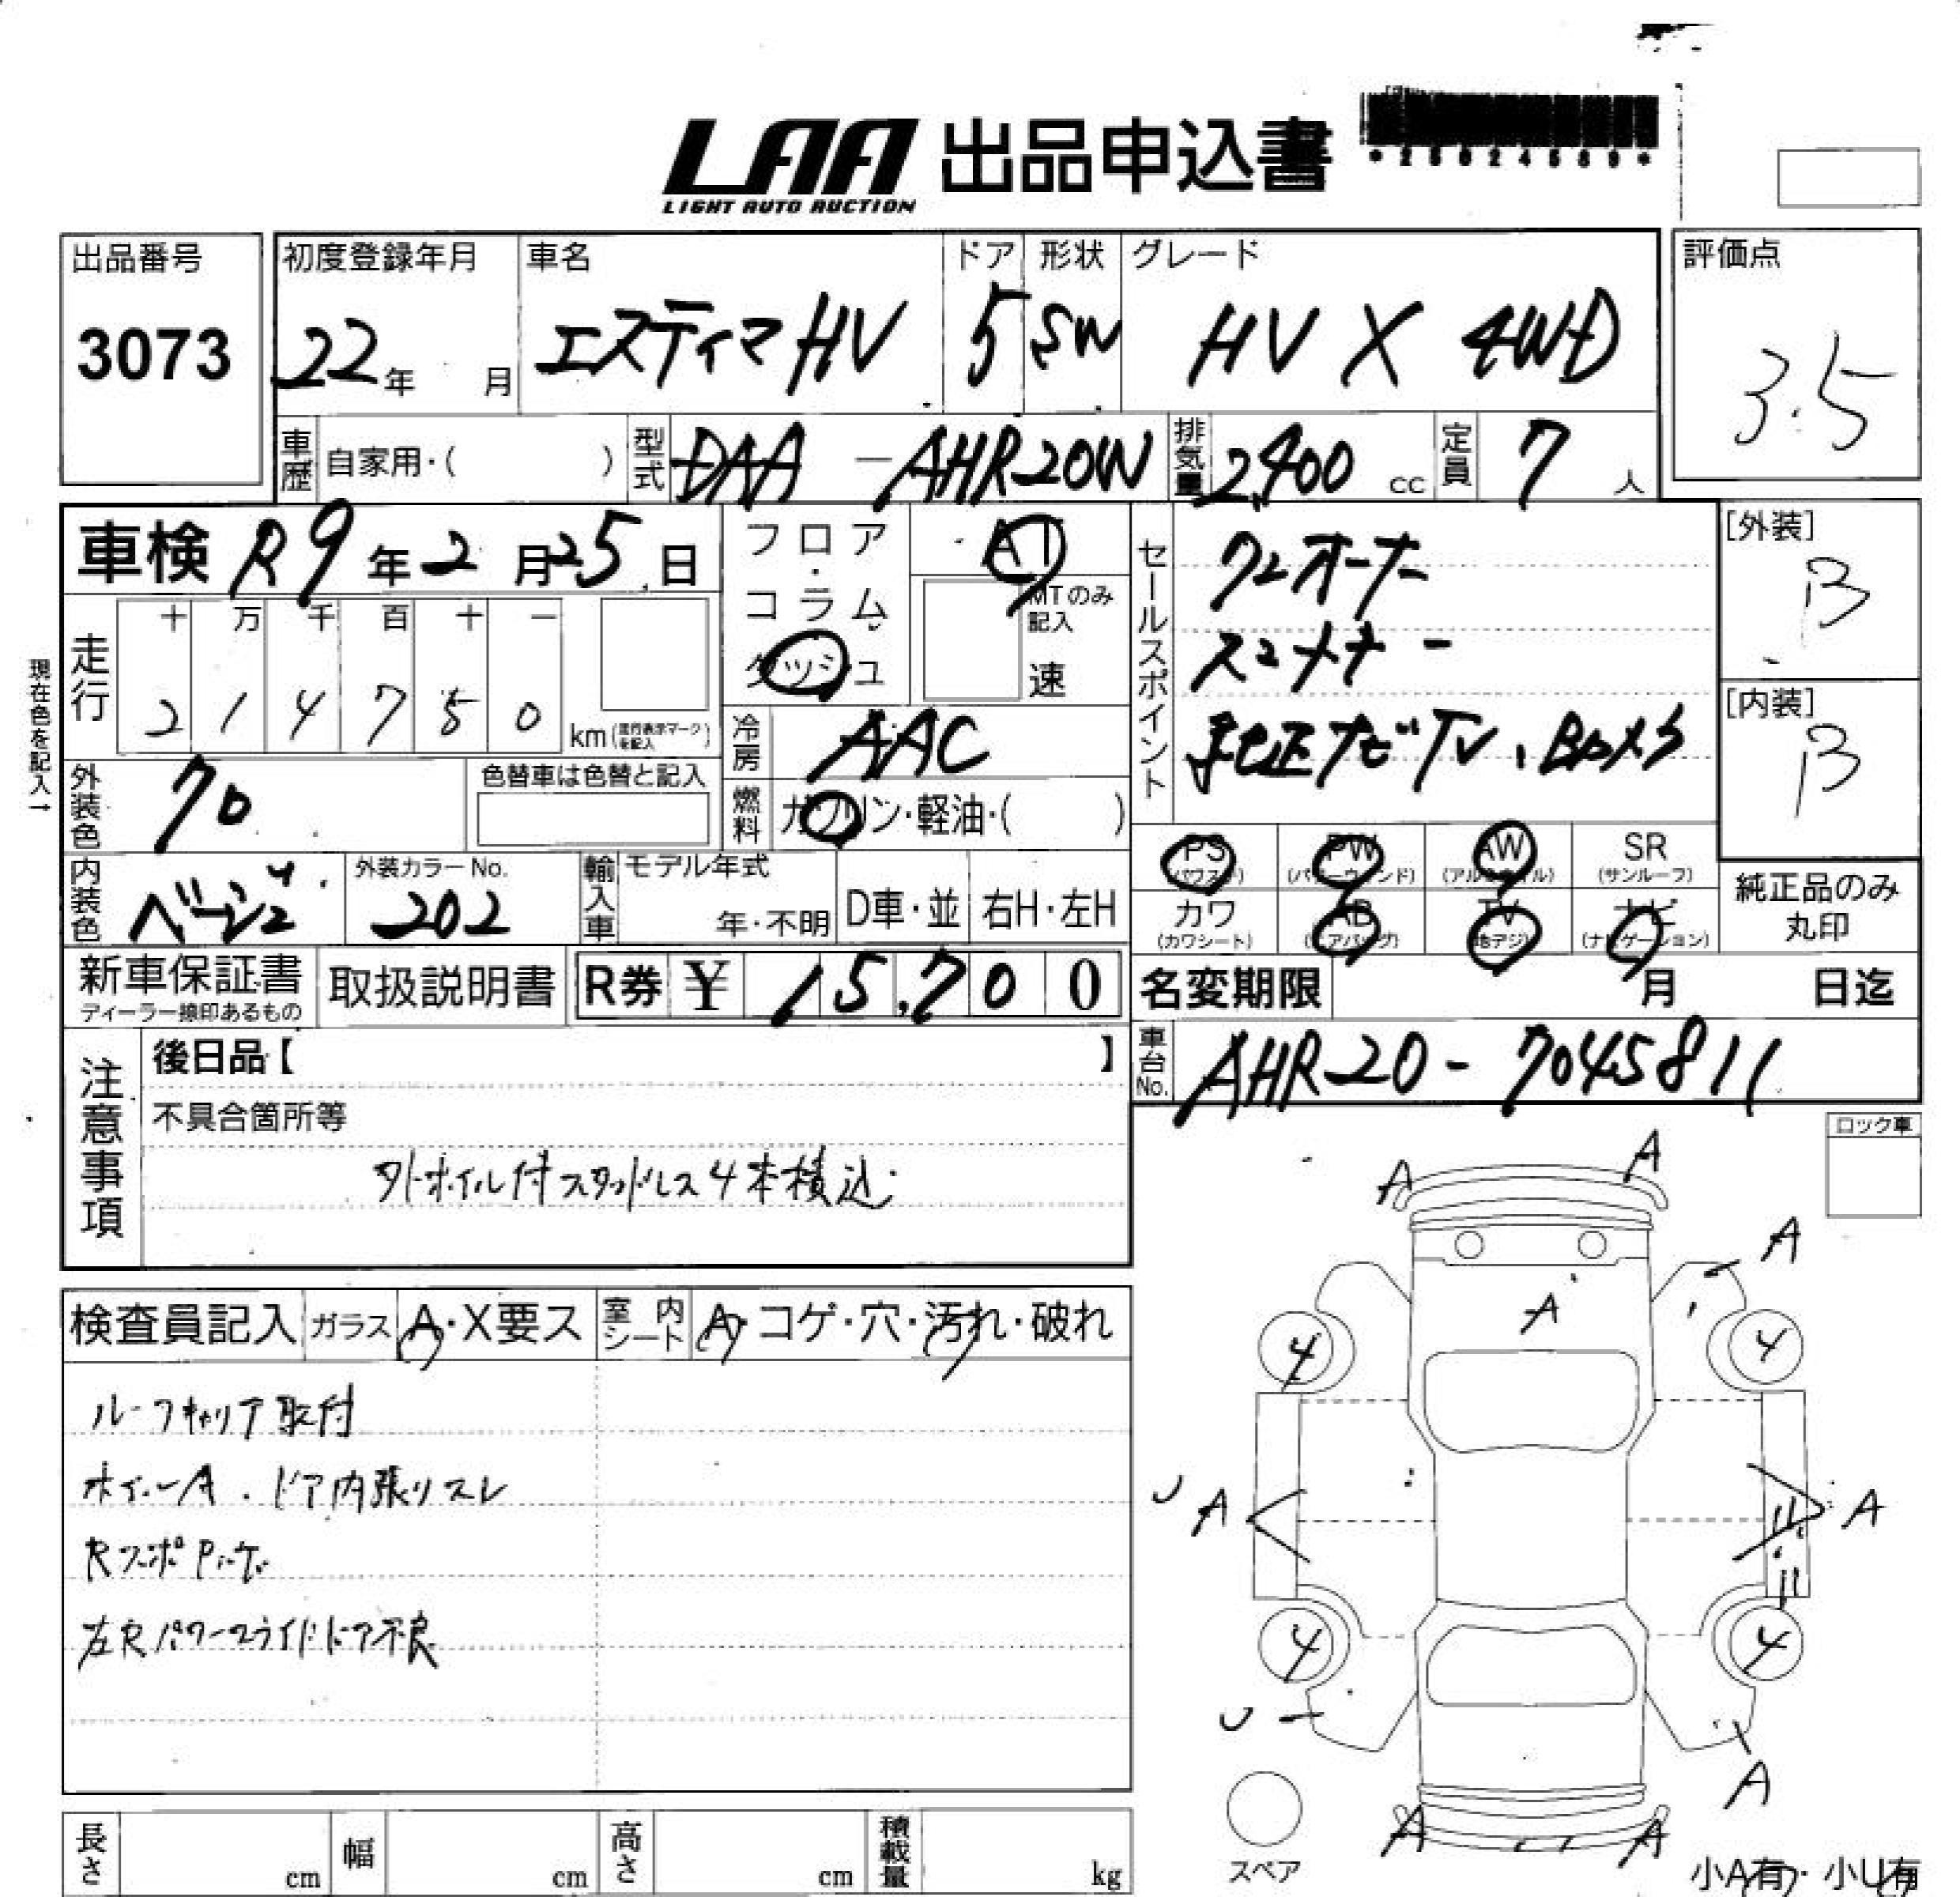 LAA 出品申込書
LIGHT AUTO AUCTION
出品番号 初度登録年月 車名 ドア 形状 グレード 評価点
3073 22年 月 エスティマHV 5 SW HV X 4WD 3.5
車歴 自家用・( ) 型式 DAA - AHR20W 排気量 2,400 cc 定員 7 人
車検 R9年2月25日
フロア・コラム・ダッシュ
AT
MTのみ記入
速
セールスポイント
ワンオーナー
スマートキー
純正ナビTV、Bカメラ
[外装]
B
[内装]
B
現在色を記入→
走行
十 万 千 百 十 一
2 1 4 7 5 0
km(走行表示マークを記入)
冷房 AAC
外装色 クロ 色替車は色替と記入
燃料 ガソリン・軽油・( )
PS (パワステ) PW (パワーウィンド) AW (アルミホイル) SR (サンルーフ)
カワ (カワシート) AB (エアバッグ) TV (地デジ) ナビ (ナビゲーション)
純正品のみ
丸印
内装色 ベージュ 外装カラーNo. 202
輸入車 モデル年式 年・不明 D車・並 右H・左H
新車保証書
ディーラー捺印あるもの
取扱説明書 R券 ¥ 15,700
名変期限 月 日迄
車台No. AHR20-7045811
注意事項
後日品【 】
不具合箇所等
外ホイル付スタッドレス4本積込
ロック車
検査員記入 ガラス A・X要ス 室内シート A・コゲ・穴・汚れ・破れ
ルーフキャリア取付
ホイールA . ドア内張リスレ
左Rパワースライドドア不良
A A
A
A
4 4
U A A
4 4
U
A
A A
スペア
小A有・小U有
長さ cm 幅 cm 高さ cm 積載量 kg